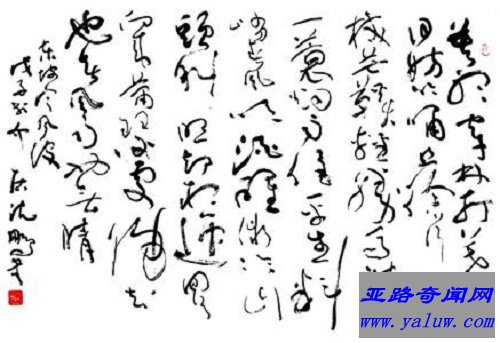 莫听穿林打叶声
何妨吟啸且徐行
竹杖芒鞋轻胜马
一蓑烟雨任平生料
峭春风吹酒醒微冷山
頭斜照却相迎回首
向来萧瑟处归去
也无风雨也无晴
东坡定风波
戊子 沈鹏书
亚路奇闻网
www.yaluw.com